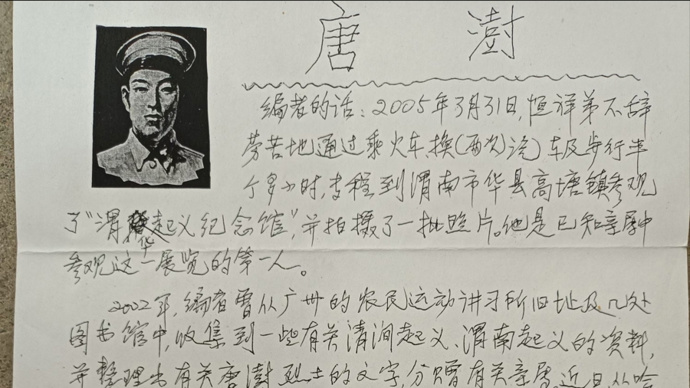 唐 澍
编者的话:2005年3月31日,恒祥弟不辞
劳苦地通过乘火车,换(两次)汽车及步行半
个多小时,专程到渭南市华县高塘镇参观
了“渭华起义纪念馆”,并拍摄了一批照片。他是已知亲属中
参观这一展览的第一人。
2002年,编者曾从广州的农民运动讲习所旧址及几处
图书馆中,收集到一些有关清涧起义、渭南起义的资料,
并整理出有关唐澍烈士的文字,分赠有关亲属。近日从